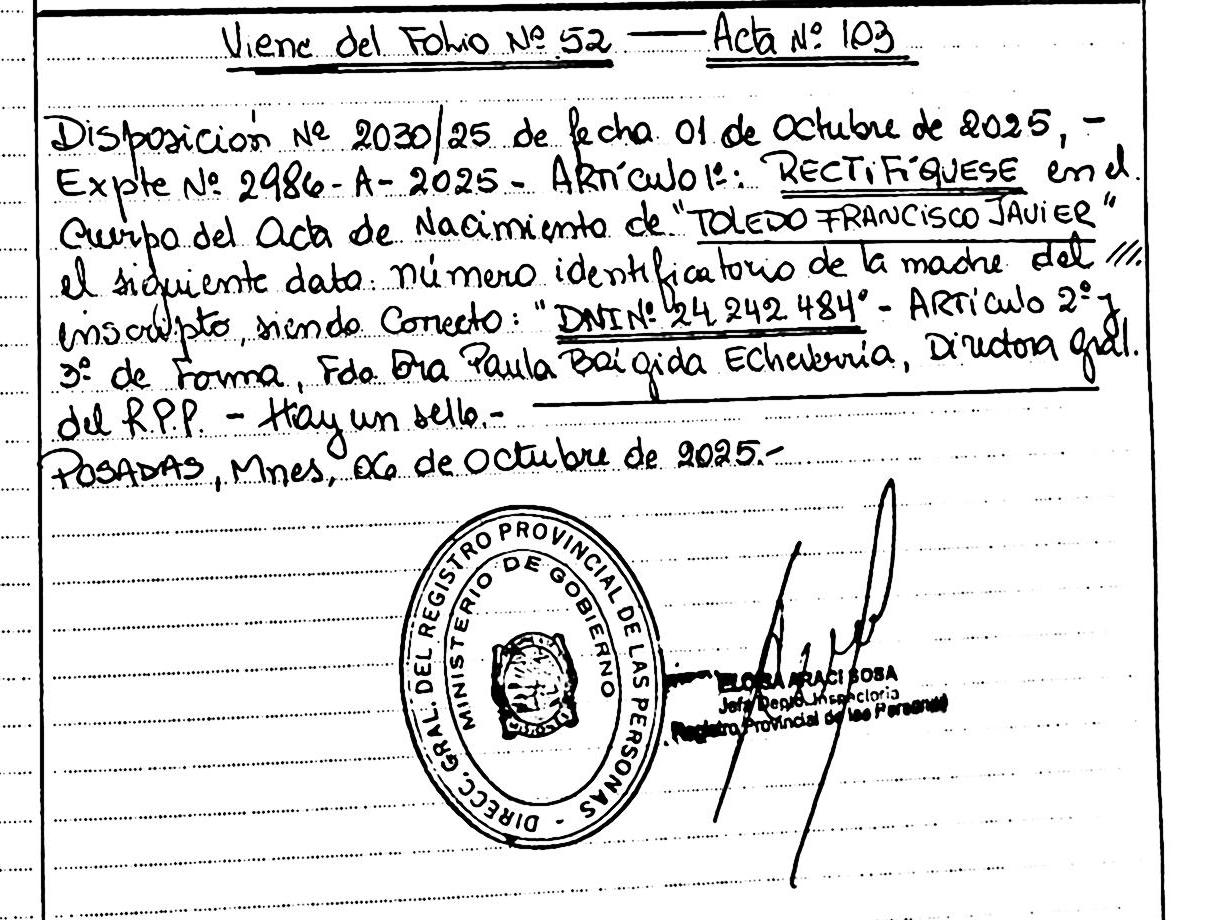 Viene del Folio Nº 52 — Acta Nº 103
Disposición Nº 2030/25 de fecha 01 de Octubre de 2025, -
Expte Nº 2986-A-2025 - ARTículo 1º: RECTIFÍQUESE en el
Cuerpo del Acta de Nacimiento de "TOLEDO FRANCISCO JAVIER"
el siguiente dato: número identificatorio de la madre del ///.
inscripto, siendo Correcto: "DNI Nº 24 242 484" - ARTículo 2º y
3º de Forma, Fdo Dra Paula Brígida Echeverría, Directora Gral.
del R.P.P. - Hay un sello.-
POSADAS, Mnes, 06 de Octubre de 2025.-
DIRECC. GRAL. DEL REGISTRO PROVINCIAL DE LAS PERSONAS -
MINISTERIO DE GOBIERNO
ELOISA ARACI SOSA
Jefa Depto. Inspectoria
Registro Provincial de las Personas